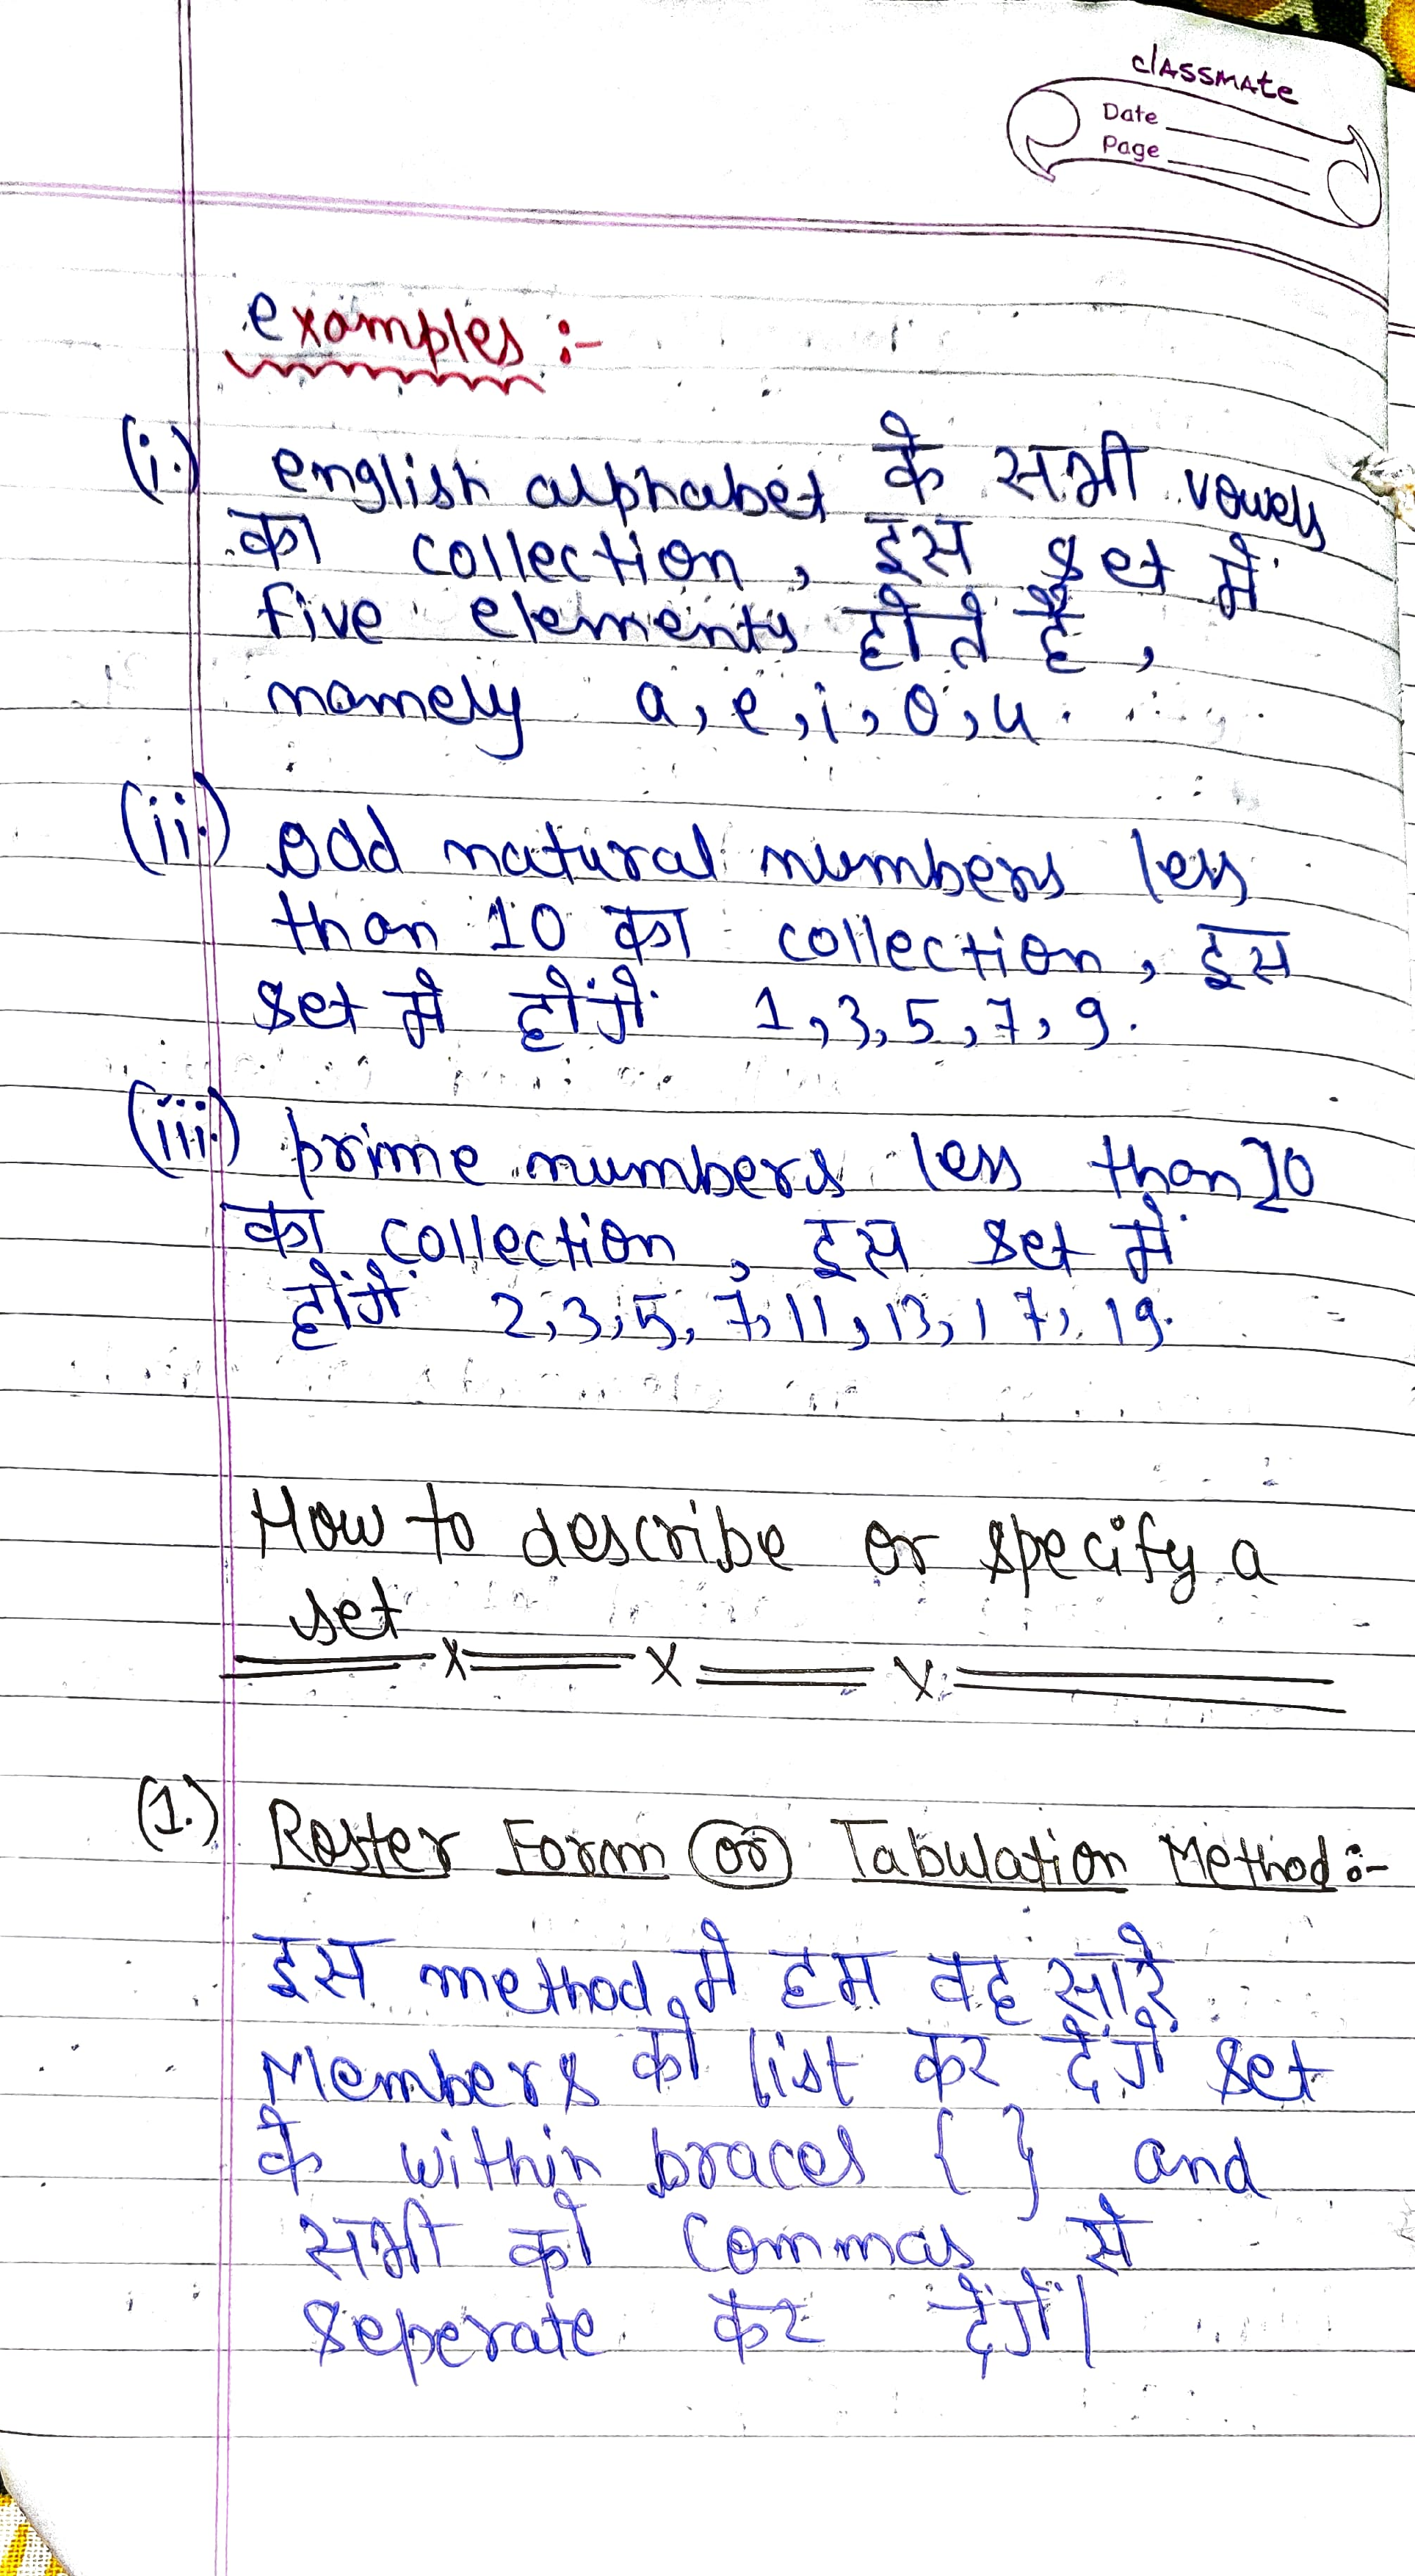 classmate
Date
Page
examples :-
(i.) english alphabet के सभी vowels
का collection, इस set में
five elements होते है,
namely a, e, i, o, u.
(ii.) odd natural numbers less
than 10 का collection, इस
set मे होंगें 1, 3, 5, 7, 9.
(iii.) prime numbers less than 20
का collection, इस set में
होंगें 2, 3, 5, 7, 11, 13, 17, 19.
How to describe or specify a
set
x x x
(1.) Roster Form or Tabulation Method :-
इस method मे हम वह सारे
Members को list कर देंगें set
के within braces { } and
सभी को commas से
seperate कर देंगें।